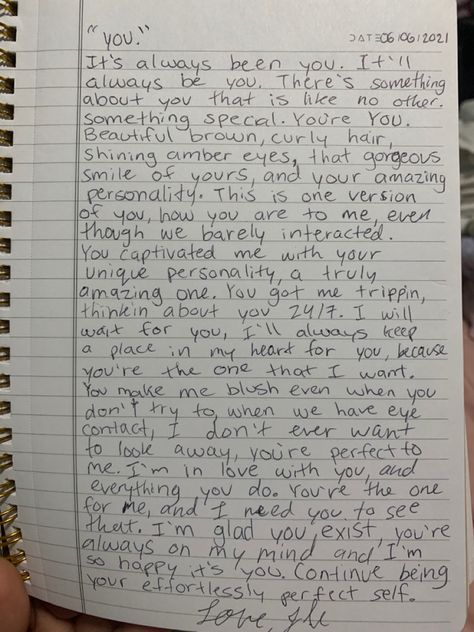 "YOU."
DATE 06/06/2021
It's always been you. It'll
always be you. There's something
about you that is like no other.
something special. You're You.
Beautiful brown, curly hair,
shining amber eyes, that gorgeous
smile of yours, and your amazing
personality. This is one version
of you, how you are to me, even
though we barely interacted.
You captivated me with your
unique personality, a truly
amazing one. You got me trippin,
thinkin about you 24/7. I will
wait for you, I'll always keep
a place in my heart for you, because
you're the one that I want.
You make me blush even when you
don't try to, when we have eye
contact, I don't ever want
to look away, you're perfect to
me. I'm in love with you, and
everything you do. You're the one
for me, and I need you to see
that. I'm glad you exist, you're
always on my mind and I'm
so happy it's you. Continue being
your effortlessly perfect self.
Love,